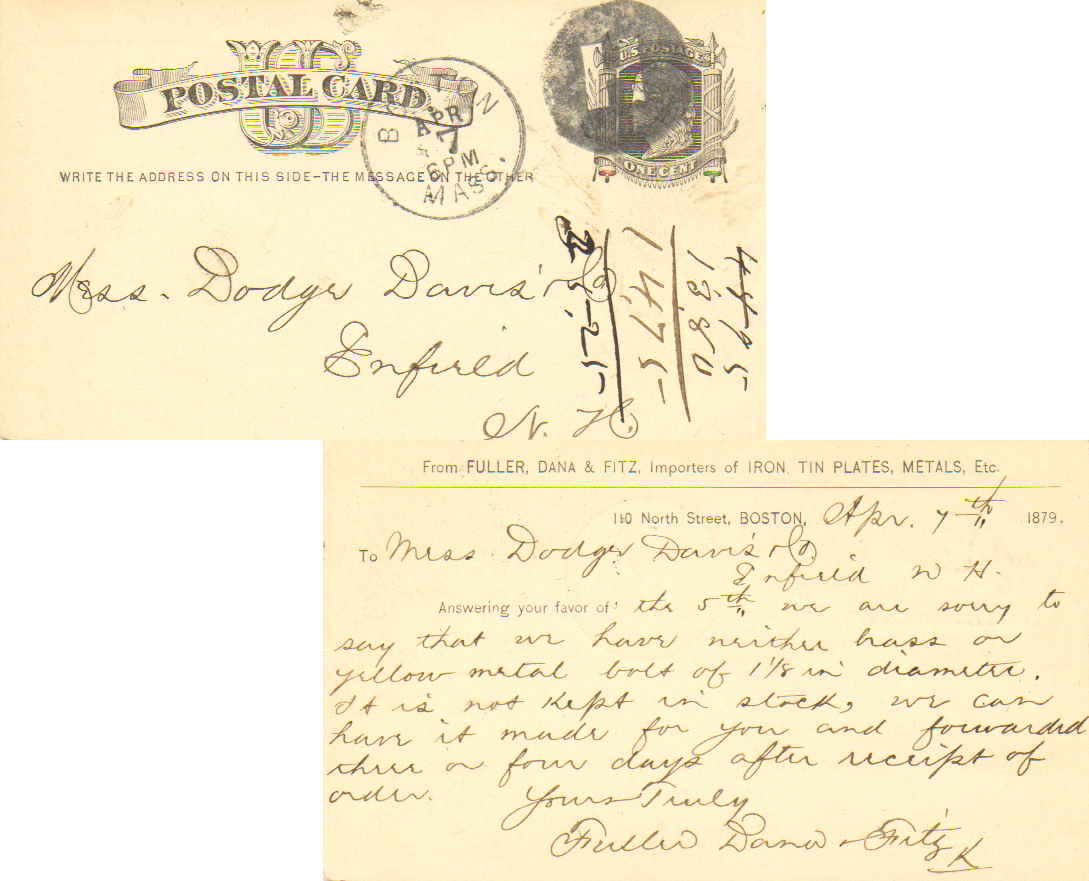 U.S. POSTAGE
US
POSTAL CARD.
ONE CENT
BOSTON
APR
7
6 PM
MASS.
WRITE THE ADDRESS ON THIS SIDE–THE MESSAGE ON THE OTHER
Mess. Dodge Davis & Co
Enfield
N. H.
1475
1380
From FULLER, DANA & FITZ, Importers of IRON, TIN PLATES, METALS, Etc.
110 North Street, BOSTON, Apr. 7th 1879.
To Mess. Dodge Davis & Co.
Enfield N H.
Answering your favor of the 5th we are sorry to
say that we have neither brass or
yellow metal bolt of 1 1/8 in diameter.
It is not kept in stock, we can
have it made for you and forwarded
three or four days after receipt of
order. Yours Truly
Fuller Dana & Fitz
K